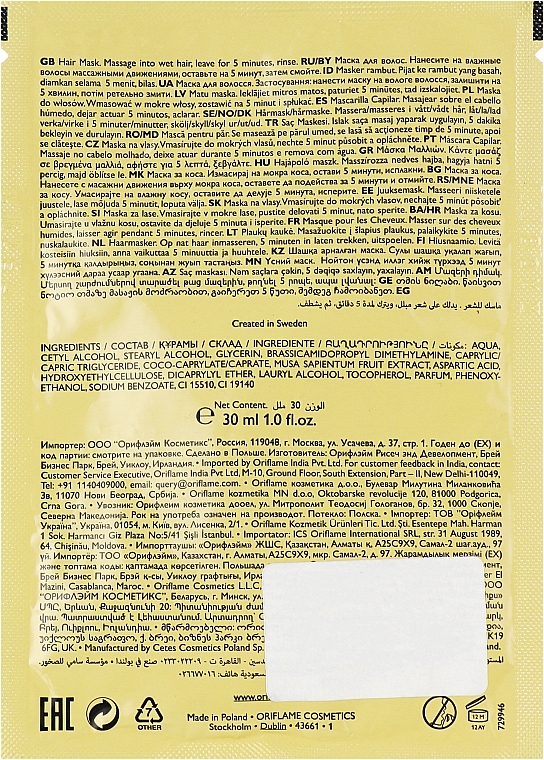 GB Hair Mask. Massage into wet hair, leave for 5 minutes, rinse. RU/BY Маска для волос. Нанесите на влажные
волосы массажными движениями, оставьте на 5 минут, затем смойте. ID Masker rambut. Pijat ke rambut yang basah,
diamkan selama 5 menit, bilas. UA Маска для волосся. Застосування: нанести маску на вологе волосся, залишити на
5 хвилин, потім ретельно змити. LV Matu maska. Iekļājiet mitros matos, paturiet 5 minūtes, tad izskalojiet. PL Maska
do włosów. Wmasować w mokre włosy, zostawić na 5 minut i spłukać. ES Mascarilla Capilar. Masajear sobre el cabello
húmedo, dejar actuar 5 minutos, aclarar. SE/NO/DK Hårmask/hårmaske. Massera/masseres i vått/vådt hår, låt/la/lad
verka/virke i 5 minuter/minutter, skölj/skyll/skyl ur/ut/ud. TR Saç Maskesi. Islak saça masaj yaparak uygulayın, 5 dakika
bekleyin ve durulayın. RO/MD Mască pentru păr. Se masează pe părul umed, se lasă să acționeze timp de 5 minute, apoi
se clătește. CZ Maska na vlasy. Vmasírujte do mokrých vlasů, nechte 5 minut působit a opláchněte. PT Máscara Capilar.
Massaje no cabelo molhado, deixe atuar durante 5 minutos e remova com água. GR Μάσκα Μαλλιών. Κάντε μασάζ
σε βρεγμένα μαλλιά, αφήστε για 5 λεπτά, ξεβγάλτε. HU Hajápoló maszk. Masszírozza nedves hajba, hagyja hatni 5
percig, majd öblítse le. MK Маска за коса. Измасирај на мокра коса, остави 5 минути, исплакни. BG Маска за коса.
Нанесете с масажни движения върху мокра коса, оставете да подейства за 5 минути и отмийте. RS/MNE Маска
за косу. Умасирајте на влажну косу, оставите да делује 5 минута, исперите. EE Juuksemask. Masseeri niisketele
juustele, lase mõjuda 5 minutit, loputa välja. SK Maska na vlasy. Vmasírujte do mokrých vlasov, nechajte 5 minút pôsobiť
a opláchnite. SI Maska za lase. Vmasirajte v mokre lase, pustite delovati 5 minut, nato sperite. BA/HR Maska za kosu.
Umasirajte u vlažnu kosu, ostavite da djeluje 5 minuta i isperite. FR Masque pour les Cheveux. Masser sur des cheveux
humides, laisser agir pendant 5 minutes, rincer. LT Plaukų kaukė. Masažuokite į šlapius plaukus, palaikykite 5 minutes,
nuskalaukite. NL Haarmasker. Op nat haar inmasseren, 5 minuten in laten trekken, uitspoelen. FI Hiusnaamio. Levitä
kosteisiin hiuksiin, anna vaikuttaa 5 minuuttia ja huuhtele. KZ Шашқа арналған маска. Сулы шашқа уқалап жағып,
5 минутқа қалдырыңыз, соңынан жуып тастаңыз. MN Үсний маск. Нойтон үсэнд иллэг хийж түрхээд 5 минут
хүлээсний дараа усаар угаана. AZ Saç maskası. Nəm saçlara çəkin, 5 dəqiqə saxlayın, yaxalayın. AM Մազերի դիմակ.
EG
ماسك للشعر. يدلك على شعر مبلل، ويترك لمدة 5 دقائق، ثم يشطف.
Created in Sweden
INGREDIENTS / СОСТАВ / ҚҰРАМЫ / СКЛАД / INGREDIENTE / ԲԱՂԱԴՐՈՒԹՅՈՒՆԸ / مكونات: AQUA,
CETYL ALCOHOL, STEARYL ALCOHOL, GLYCERIN, BRASSICAMIDOPROPYL DIMETHYLAMINE, CAPRYLIC/
CAPRIC TRIGLYCERIDE, COCO-CAPRYLATE/CAPRATE, MUSA SAPIENTUM FRUIT EXTRACT, ASPARTIC ACID,
HYDROXYETHYLCELLULOSE, DICAPRYLYL ETHER, LAURYL ALCOHOL, TOCOPHEROL, PARFUM, PHENOXY-
ETHANOL, SODIUM BENZOATE, CI 15510, CI 19140
℮ Net Content. الوزن 30 ملل
30 ml 1.0 fl.oz.
Импортер: ООО "Орифлэйм Косметикс", Россия, 119048, г. Москва, ул. Усачева, д. 37, стр. 1. Годен до (EX) и
код партии: смотрите на упаковке. Сделано в Польше. Изготовитель: Орифлэйм Рисеч энд Девелопмент, Брей
Бизнес Парк, Брей, Уиклоу, Ирландия. • Imported by Oriflame India Pvt. Ltd. For customer feedback in India, contact:
Customer Service Executive, Oriflame India Pvt Ltd, M-10, Ground Floor, South Extension, Part – II, New Delhi-110049,
Tel: +91 1140409000, email: query@oriflame.com. • Oriflame козметика д.о.о., Булевар Милутина Миланковића
3в, 11070 Нови Београд, Србија. • Oriflame kozmetika MN d.o.o, Oktobarske revolucije 120, 81000 Podgorica,
Crna Gora. • Увозник: Орифлејм козметика дооел, ул. Митрополит Теодосиј Гологанов, бр. 32, 1000 Скопје,
Северна Македонија. Рок на употреба означен на производот. Потекло Полска. • Імпортер: ТОВ "Оріфлейм
Україна", Україна, 01054, м. Київ, вул. Лисенка, 2/1. • Oriflame Kozmetik Ürünleri Tic. Ltd. Şti. Esentepe Mah. Harman
1 Sok. Harmancı Giz Plaza No:5/41 Şişli İstanbul. • Importator: ICS Oriflame International SRL, str. 31 August 1989,
64, Chişinău, Moldova. • Импорттаушы: «Орифлэйм» ЖШС, Қазақстан, Алматы қ, A25C9X9, Самал-2 шағ.ауд., 97
үй. Импортёр: ТОО «Орифлэйм», Казахстан, г. Алматы, A25C9X9, мкр. Самал-2, д. 97. Жарамдылық мерзімі (EX)
және топтама коды: қаптамада көрсетілген. Польшада
Брей Бизнес Парк, Брэй қ-сы, Уиклоу графтығы, Ирла
Mazini, Casablanca, Maroc. • Oriflame Cosmetics L.L.C,
"ОРИФЛЭЙМ КОСМЕТИКС", Беларусь, г. Минск, ул.
K19
6FG, UK. • Manufactured by Cetes Cosmetics Poland Sp.
www.orif
EAC
7
OTHER
Made in Poland • ORIFLAME COSMETICS
Stockholm • Dublin • 43661 • 1
12 M
12 AY
729946